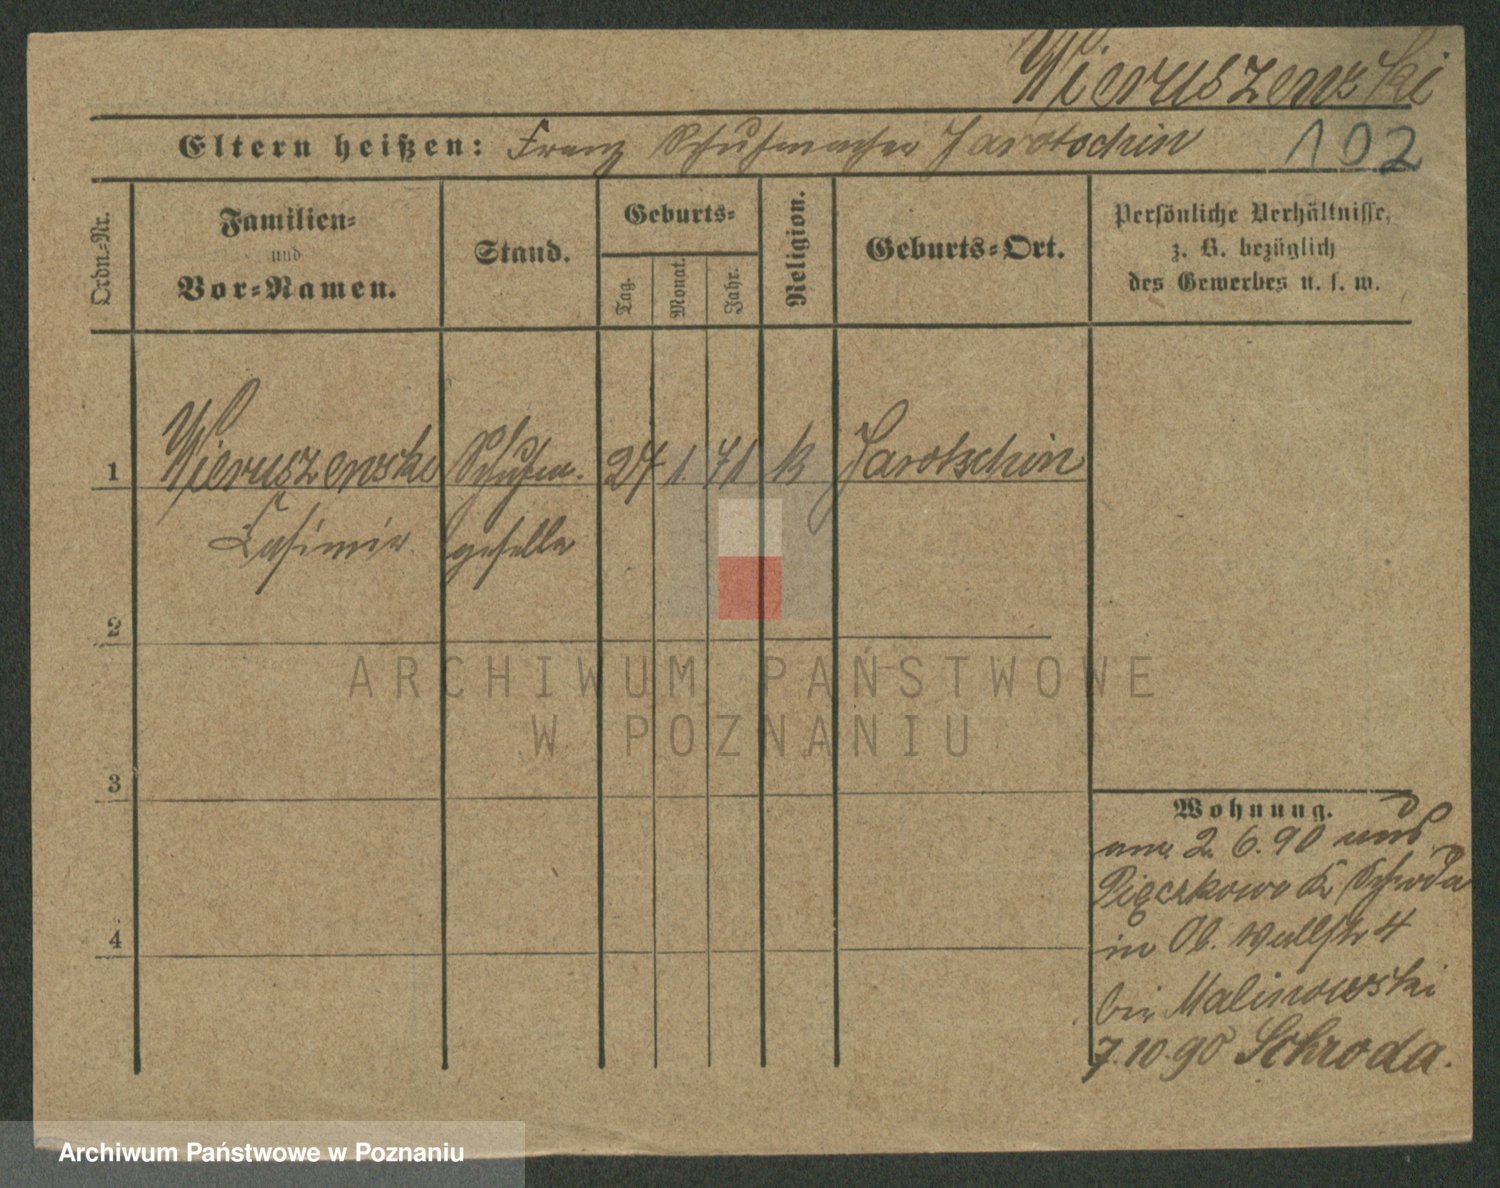 Wieruszewski
Eltern heißen: Franz Schuhmacher Jarotschin 102
Ordn.-Nr.
Familien-
und
Vor-Namen.
Stand.
Geburts-
Tag.
Monat.
Jahr.
Religion.
Geburts-Ort.
Persönliche Verhältnisse,
z. B. bezüglich
des Gewerbes u. s. w.
1 Wieruszewski Schuhm. 27 1. 71 k Jarotschin
Casimir geselle
2
3
4
Wohnung.
am 2. 6. 90 aus
Pięczkowo Kr Schroda
in Ob. Wallstr 4
bei Malinowski
7.10.90 Schroda.
ARCHIWUM PAŃSTWOWE
W POZNANIU
Archiwum Państwowe w Poznaniu